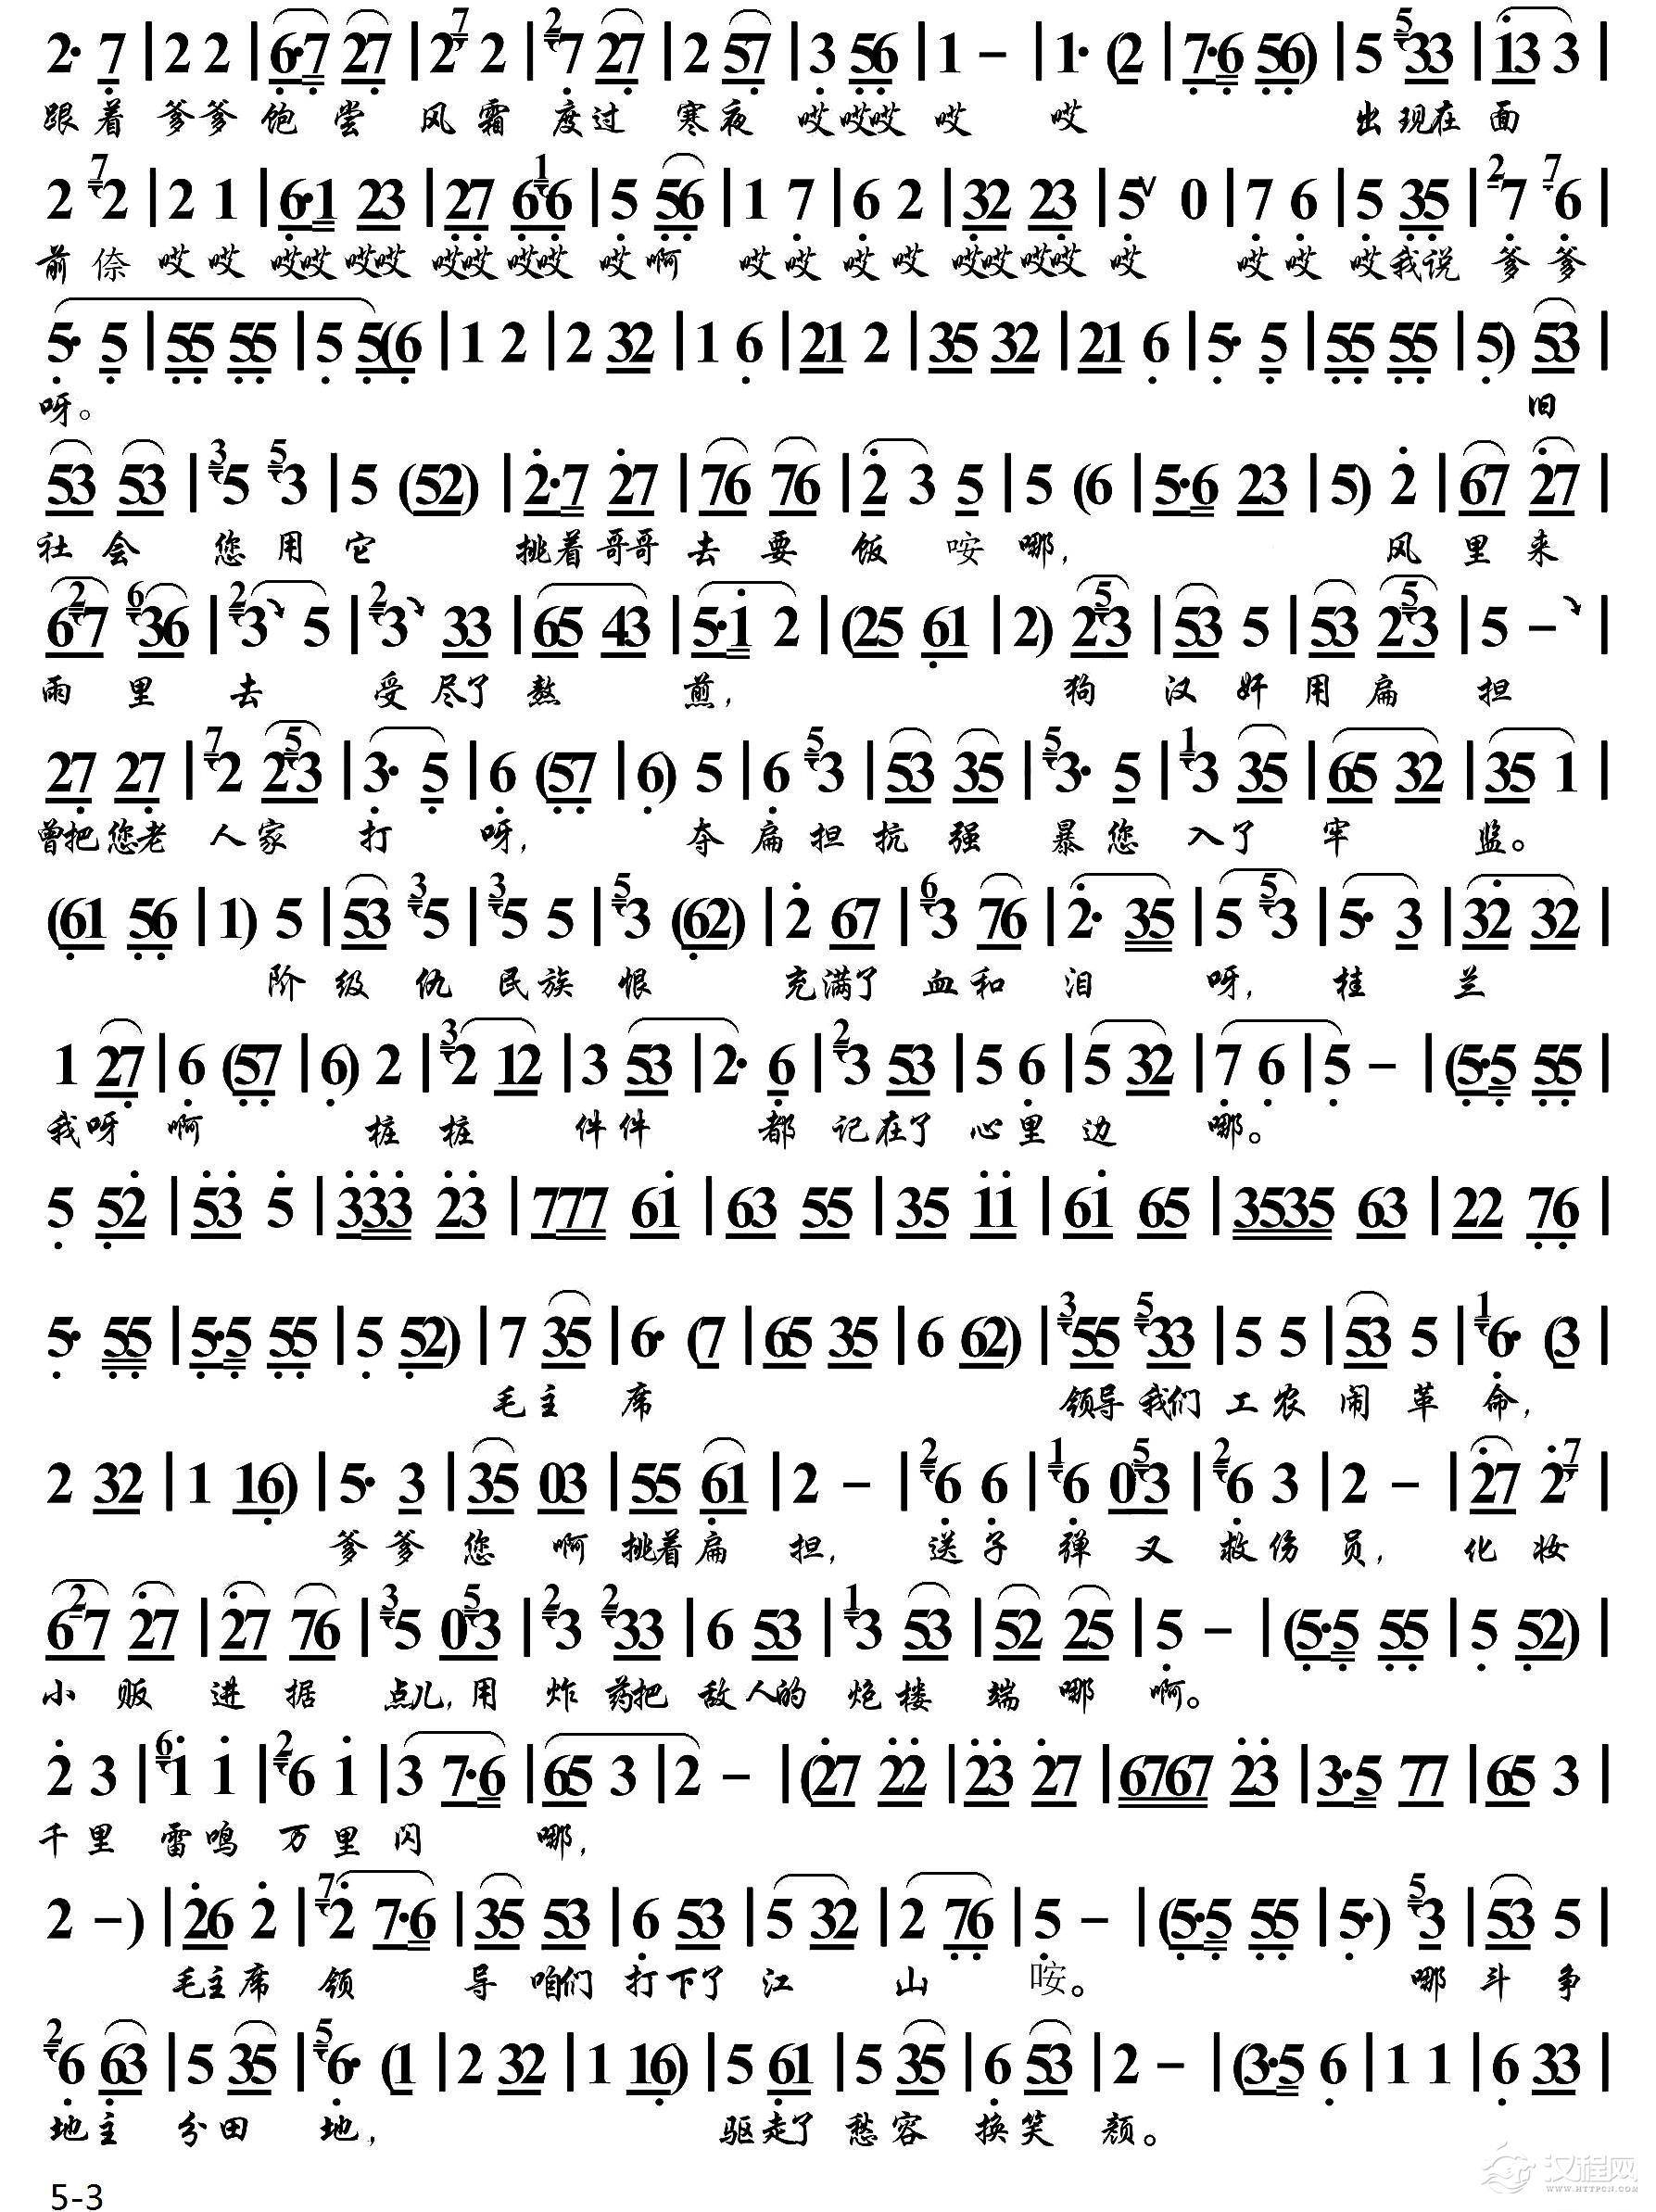 2· 7 | 2 2 | 6·7 27 | 2 7 2 | 2 7 27 | 2 57 | 3 56 | 1 – | 1· (2 | 7·6 56) | 5 5 33 | 13 3 |
跟着 爹爹 饱 尝 风 霜 度过 寒夜 哎哎哎 哎 哎 出现在 面
2 7 2 | 2 1 | 6·1 23 | 27 6 1 6 | 5 56 | 1 7 | 6 2 | 32 23 | 5 v 0 | 7 6 | 5 35 | 2 7 7 6 |
前 倷 哎哎 哎哎哎哎 哎哎哎哎 哎啊 哎哎 哎哎 哎哎哎哎 哎 哎哎 哎我说 爹爹
5· 5 | 55 55 | 5 5(6 | 1 2 | 2 32 | 1 6 | 21 2 | 35 32 | 21 6 | 5· 5 | 55 55 | 5) 53 |
呀。 旧
53 53 | 3 5 5 3 | 5 (52) | 2·7 27 | 76 76 | 2 3 5 | 5 (6 | 5·6 23 | 5) 2 | 67 27 |
社 会 您 用 它 挑着哥哥 去 要 饭 咹 哪, 风 里 来
6 2 7 6 36 | 2 3 5 | 2 3 33 | 65 43 | 5·1 2 | (25 61 | 2) 2 5 3 | 53 5 | 53 2 5 3 | 5 – |
雨 里 去 受 尽了 熬 煎, 狗 汉 奸 用 扁 担
27 27 | 7 2 2 5 3 | 3· 5 | 6 (57 | 6) 5 | 6 5 3 | 53 35 | 5 3· 5 | 1 3 35 | 65 32 | 35 1 |
曾把您老 人家 打 呀, 夺 扁 担 抗 强 暴 您 入了 牢 监。
(61 56 | 1) 5 | 53 3 5 | 3 5 5 | 5 3 (62) | 2 67 | 6 3 76 | 2· 35 | 5 5 3 | 5· 3 | 32 32 |
阶 级 仇 民 族 恨 充满了 血 和 泪 呀, 桂 兰
1 27 | 6 (57 | 6) 2 | 3 2 12 | 3 53 | 2· 6 | 2 3 53 | 5 6 | 5 32 | 7 6 | 5 – | (5·5 55 |
我 呀 啊 桩 桩 件件 都 记 在了 心 里 边 哪。
5 52 | 53 5 | 333 23 | 777 61 | 63 55 | 35 11 | 61 65 | 3535 63 | 22 76 |
5· 55 | 5·5 55 | 5 52) | 7 35 | 6· (7 | 65 35 | 6 62) | 3 55 5 33 | 5 5 | 53 5 | 1 6· (3 |
毛 主 席 领导 我们 工 农 闹 革 命,
2 32 | 1 16) | 5· 3 | 35 03 | 55 61 | 2 – | 2 6 6 | 1 6 0 5 3 | 2 6 3 | 2 – | 27 2 7 |
爹 爹 您 啊 挑着扁 担, 送 子 弹 又 救 伤 员, 化 妆
6 2 7 27 | 27 76 | 3 5 0 5 3 | 2 3 2 33 | 6 53 | 1 3 53 | 52 25 | 5 – | (5·5 55 | 5 52) |
小 贩 进 据 点儿, 用 炸 药把 敌 人的 炮 楼 端 哪 啊。
2 3 | 6 1 1 | 2 6 1 | 3 7·6 | 65 3 | 2 – | (27 22 | 23 27 | 6767 23 | 3·5 77 | 65 3 |
千里 雷鸣 万里 闪 哪,
2 –) | 26 2 | 7 2 7·6 | 35 53 | 6 53 | 5 32 | 2 76 | 5 – | (5·5 55 | 5·) 5 3 | 53 5 |
毛主席 领 导 咱们 打下了 江 山 咹。 哪 斗 争
2 6 63 | 5 35 | 5 6· (1 | 2 32 | 1 16) | 5 61 | 5 35 | 6 53 | 2 – | (3·5 6 | 1 1 | 6 33 |
地 主 分 田 地, 驱走了 愁 容 换 笑 颜。
5-3
汉程网
WWW.HTTPCN.COM